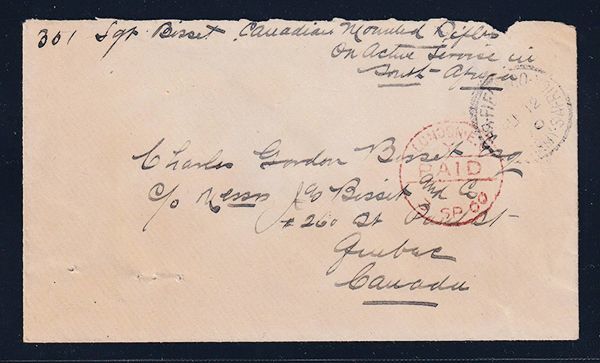 301 Sgt Bisset Canadian Mounted Rifles
On Active Service in
South Africa
LONDON
PAID
SP 00
Charles Gordon Bisset Esq
c/o Messrs Jas Bisset and Co
260 St Paul St
Quebec
Canada